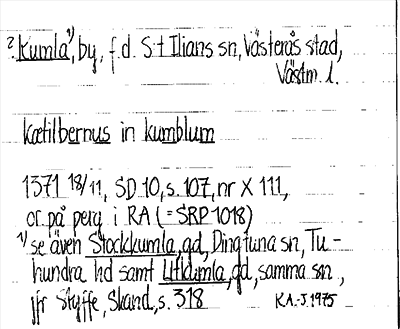 ? Kumla 1), by, f.d. S:t Ilians sn, Västerås stad,
Västm. l.
kætilbernus in kumblum
1371 18/11, SD 10, s. 107, nr X 111,
or på perg i RA (= SRP 1018)
1) se även Stockkumla, gd, Dingtuna sn, Tu-
hundra hd samt Utkumla, gd, samma sn,
jfr Styffe, Skand., s. 318
K.A.-J. 1975